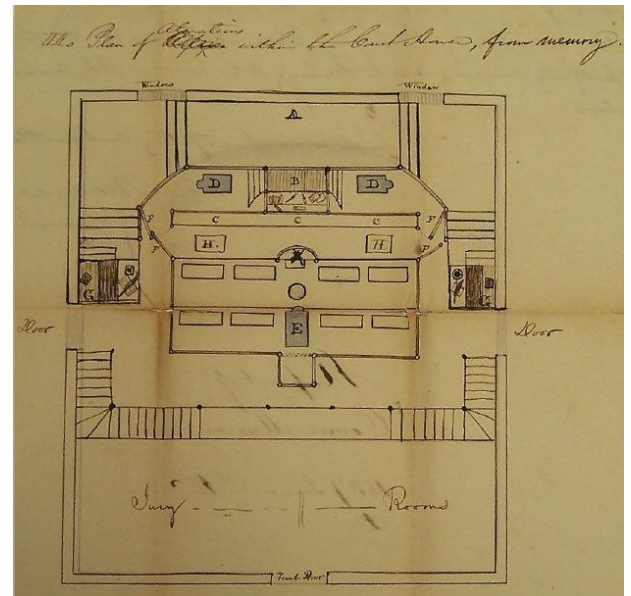 Plan of Alterations within the Court House, from memory.
Window
Window
A
D
B
D
C
C
C
F
F
F
F
H.
H
G
G
E
Door
Door
Jury
Rooms
Front Door